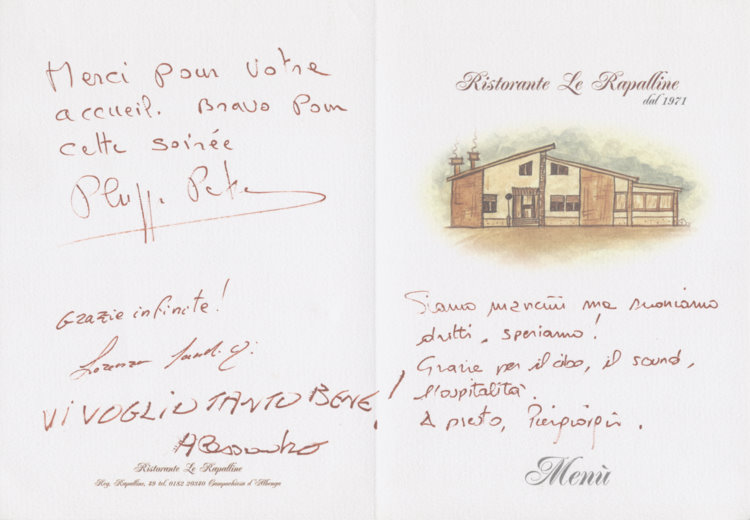 Merci pour votre
accueil. Bravo pour
cette soirée
Grazie infinite!
Lorenzo
VI VOGLIO TANTO BENE!
Alessandro
Ristorante Le Rapalline
Reg. Rapalline, 49 tel. 0182 20340 Campochiesa d'Albenga
Ristorante Le Rapalline
dal 1971
Siamo mancini ma suoniamo
dritti, speriamo!
Grazie per il cibo, il sound,
l'ospitalità.
A presto, Piergiorgio.
Menù